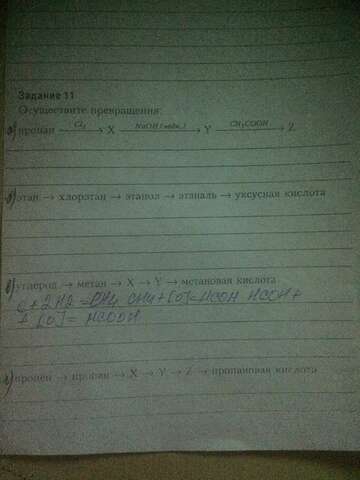 Задание 11
Осуществите превращения:
а) пропан → Cl₂ → X → NaOH (водн.) → Y → CH₃COOH → Z
б) этан → хлорэтан → этанол → этаналь → уксусная кислота
в) углерод → метан → X → Y → метановая кислота
C + 2H2 = CH4 CH4 + [O] = HCOH HCOH +
+ [O] = HCOOH
г) пропен → пропан → X → Y → Z → пропановая кислота